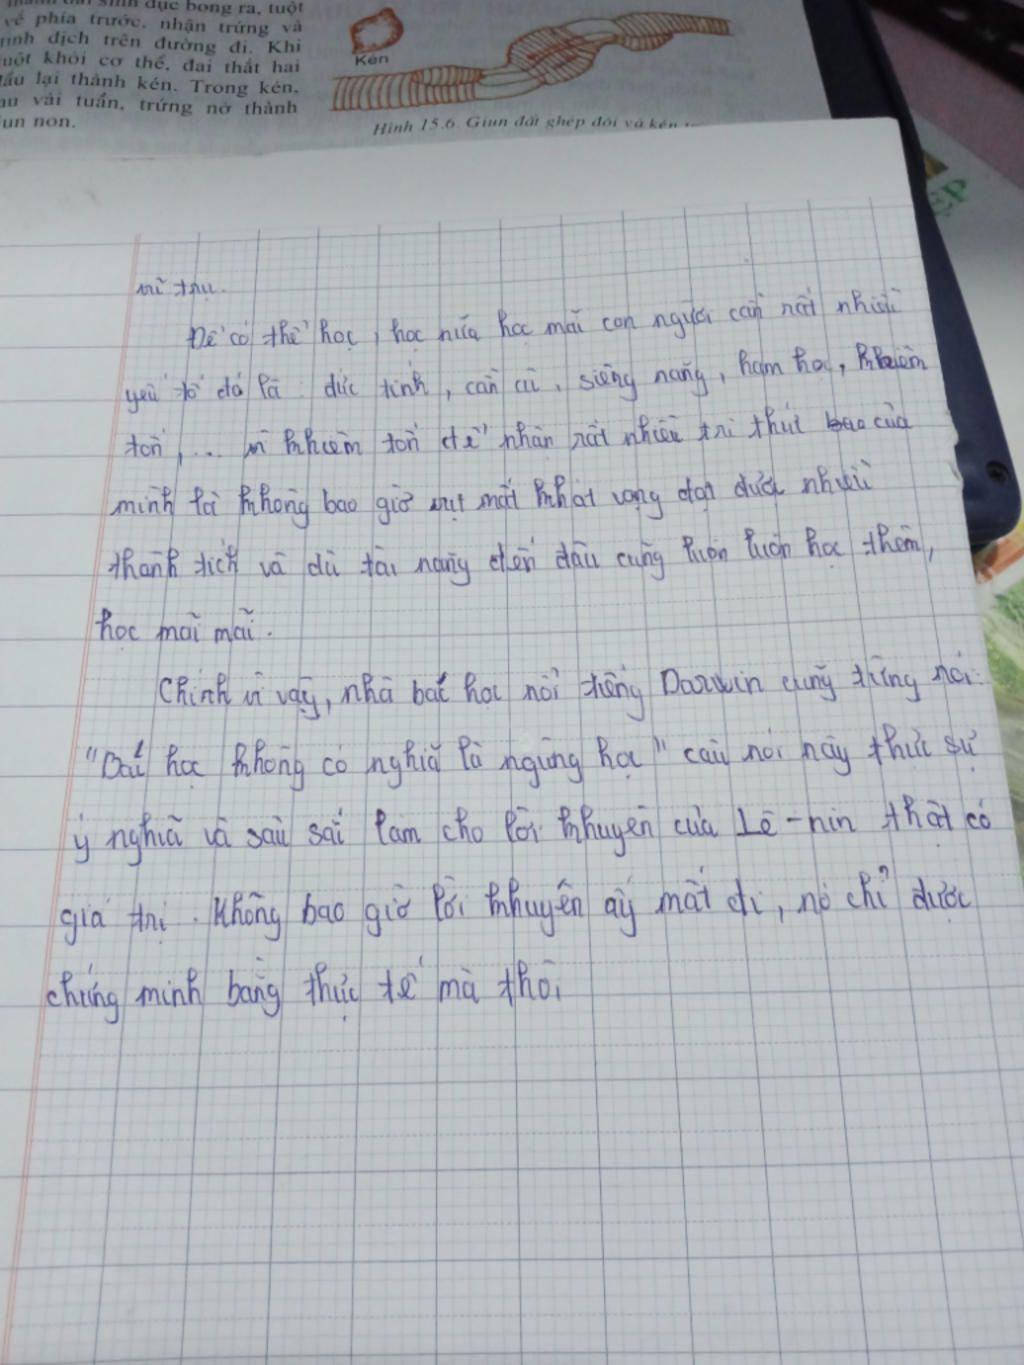 sinh dục bong ra, tuột
về phía trước, nhận trứng và
tinh dịch trên đường đi. Khi
tuột khỏi cơ thể, đai thắt hai
đầu lại thành kén. Trong kén,
sau vài tuần, trứng nở thành
giun non.
Kén
Hình 15.6. Giun đất ghép đôi và kén
Để có thể học, học nữa học mãi con người cần rất nhiều
yếu tố đó là: đức tính, cần cù, siêng năng, ham học, khiêm
tốn, ... vì khiêm tốn để nhận rất nhiều tri thức bao của
minh là không bao giờ vụt mất khát vọng đạt được nhiều
thành tích và dù tài năng đến đâu cũng luôn luôn học thêm,
học mãi mãi.
Chính vì vậy, nhà bác học nổi tiếng Darwin cũng từng nói:
"Bác học không có nghĩa là ngừng học" câu nói này thực sự
ý nghĩa và sâu sắc làm cho lời khuyên của Lê-nin thật có
giá trị. Không bao giờ lời khuyên ấy mất đi, nó chỉ được
chứng minh bằng thực tế mà thôi